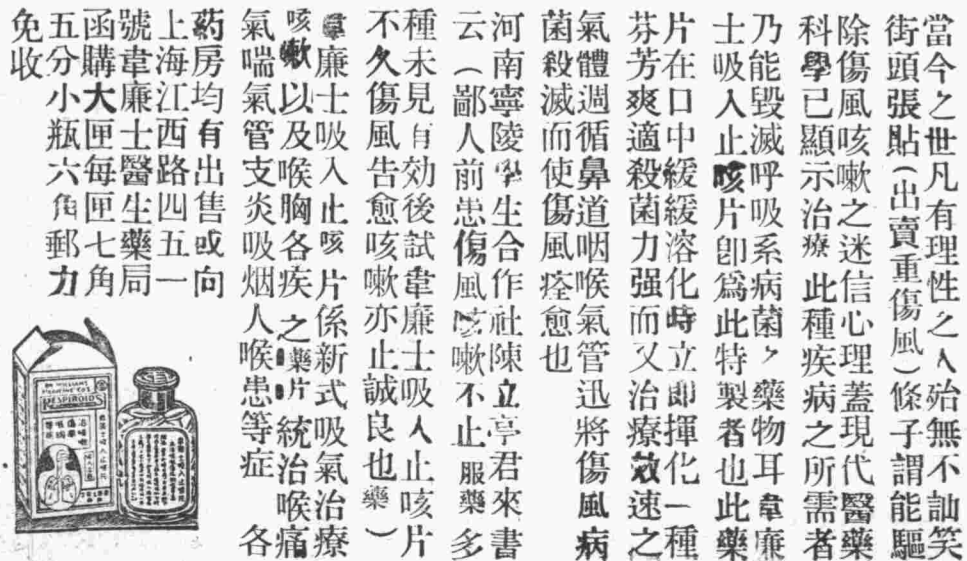 當今之世凡有理性之人殆無不訕笑
街頭張貼(出賣重傷風)條子謂能驅
除傷風咳嗽之迷信心理蓋現代醫藥
科學已顯示治療此種疾病之所需者
乃能毀滅呼吸系病菌之藥物耳韋廉
士吸入止咳片卽爲此特製者也此藥
片在口中緩緩溶化時立即揮化一種
芬芳爽適殺菌力强而又治療效速之
氣體週循鼻道咽喉氣管迅將傷風病
菌殺滅而使傷風痊愈也
河南寧陵學生合作社陳立亭君來書
云(鄙人前患傷風咳嗽不止服藥多
種未見有効後試韋廉士吸入止咳片
不久傷風告愈咳嗽亦止誠良也藥)
韋廉士吸入止咳片係新式吸氣治療
咳嗽以及喉胸各疾之藥片統治喉痛
氣喘氣管支炎吸烟人喉患等症 各
药房均有出售或向
上海江西路四五一
號韋廉士醫生藥局
函購大匣每匣七角
五分小瓶六角郵力
免收
DR WILLIAMS
MEDICINE CO'S
RESPIROIDS